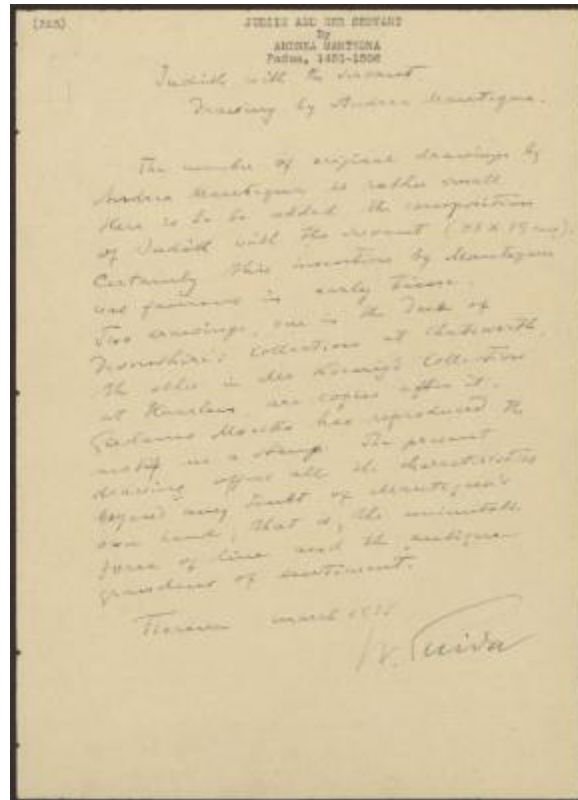 JUDITH AND HER SERVANT
By
ANDREA MANTEGNA
Padua, 1431-1506
Judith with the servant
Drawing by Andrea Mantegna.
The number of original drawings by
Andrea Mantegna is rather small
Here is to be added the composition
of Judith with the servant
Certainly this invention by Mantegna
was famous in early times.
Two drawings, one in the Duke of
Devonshire's Collections at Chatsworth,
the other in the Koenigs Collection
at Haarlem, are copies after it.
Girolamo Mocetto has reproduced the
motif in a The present
drawing offers all the characteristics
beyond any doubt of Mantegna's
own hand, that is, the inimitable
force of line and the antique
grandeur of sentiment.
March
W. Suida